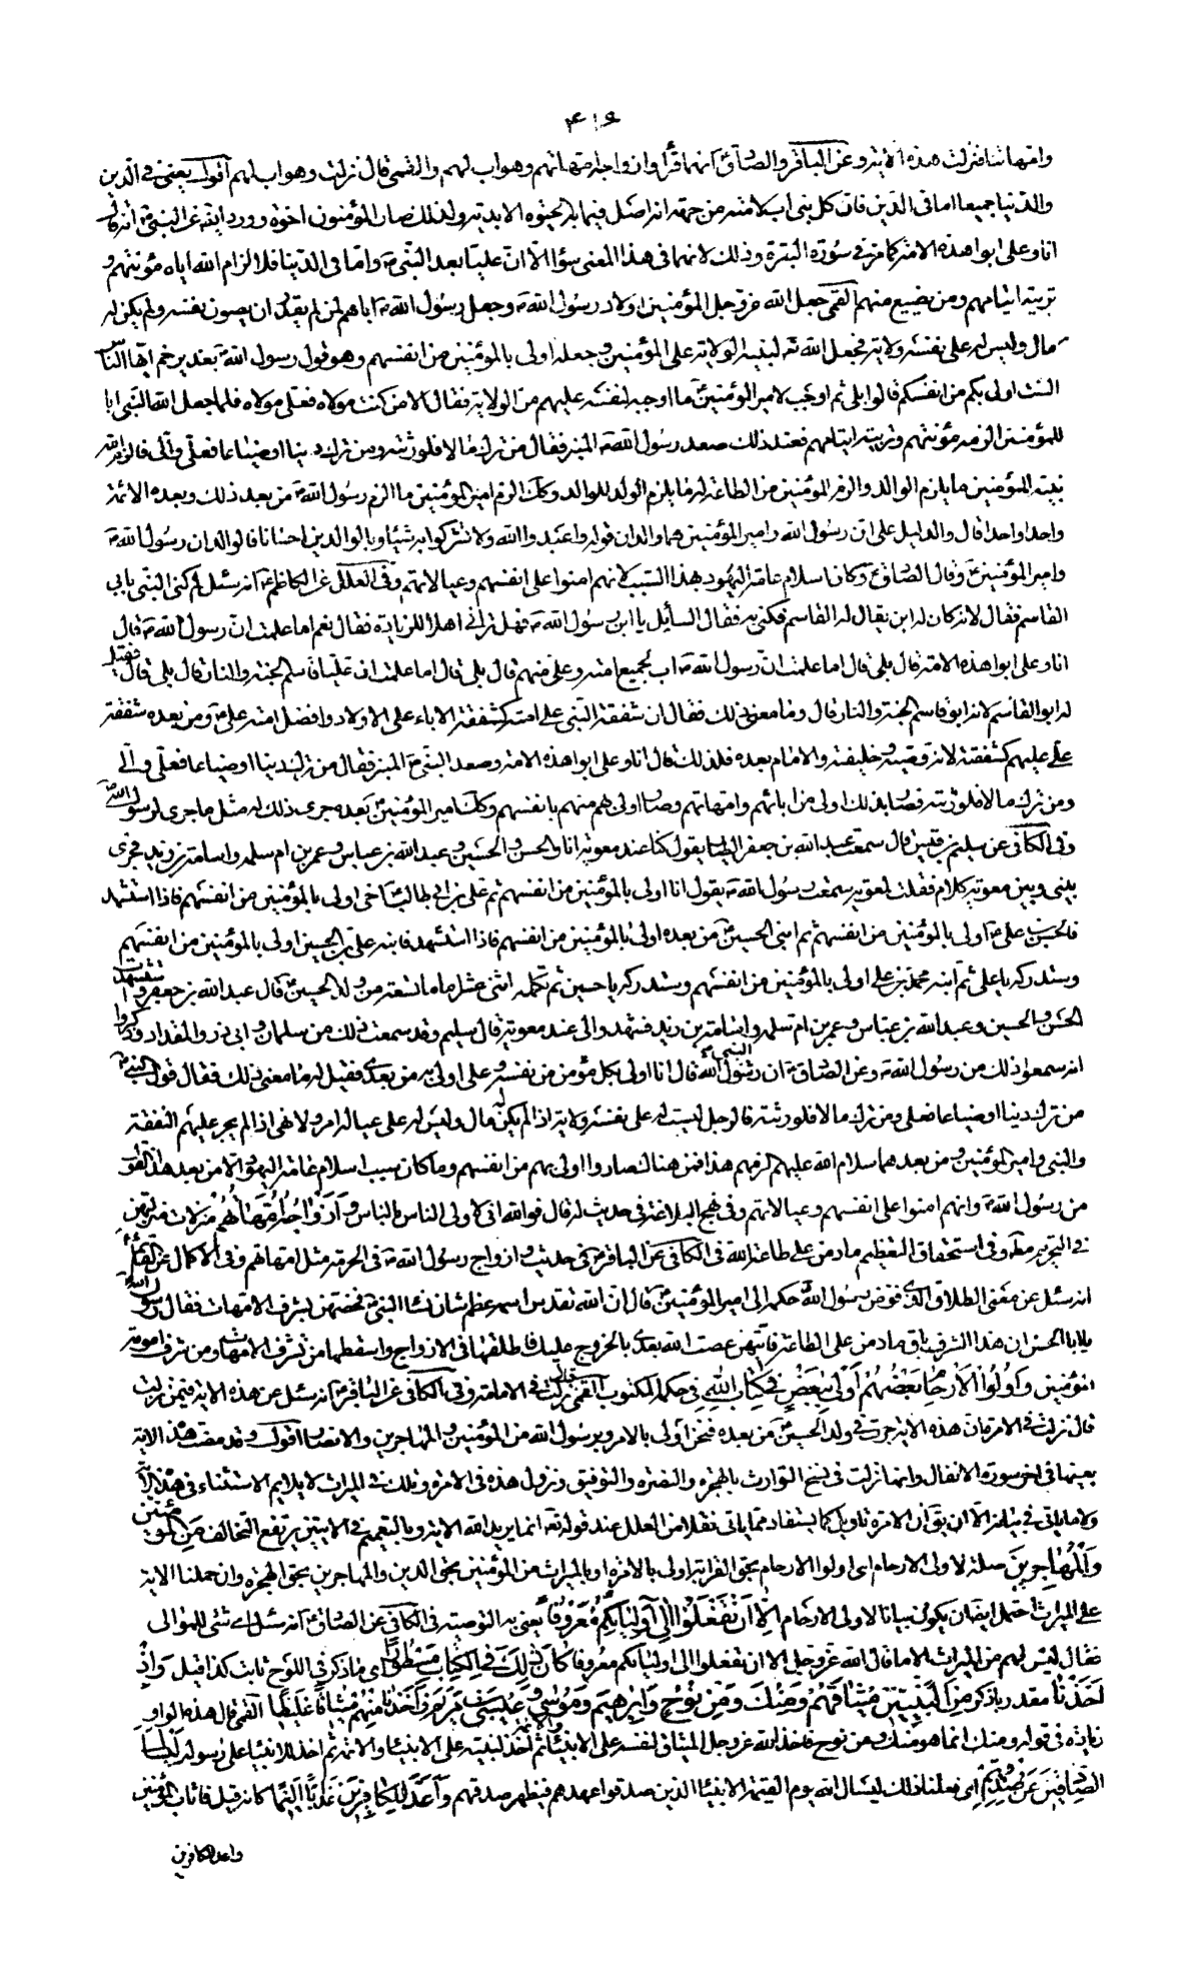 ۴۱۶
وامّهاتنا فنزلت هذه الاية وعن الباقر والصادق انهما قرأا وازواجه امهاتهم وهو اب لهم والقمى قال نزلت وهو اب لهم اقول يعنى فى الدين
والدنيا جميعا اما فى الدين فان كل نبى اب لامته من جهة انه اصل فيما به الحيوة الابدية ولذلك صار المؤمنون اخوة وورد ايضا عن النبى ص انه قال
انا وعلى ابوا هذه الامة كما مر فى سورة البقرة وذلك لانهما فى هذا المعنى سواء الا ان عليا بعد النبى ص واما فى الدنيا فلالزام الله اياه مؤنتهم و
تربية ايتامهم ومن يضيع منهم القمى جعل الله عز وجل المؤمنين اولاد رسول الله ص وجعل رسول الله ص اباهم لمن لم يقدر ان يصون نفسه ولم يكن له
مال وليس له على نفسه ولاية فجعل الله تع لنبيه الولاية على المؤمنين وجعله اولى بالمؤمنين من انفسهم وهو قول رسول الله ص بغدير خم ايها الناس
الست اولى بكم من انفسكم قالوا بلى ثم اوجب لامير المؤمنين ع ما اوجبه لنفسه عليهم من الولاية فقال الا من كنت مولاه فعلى مولاه فلما جعل الله النبى ابا
للمؤمنين الزمه مؤنتهم وتربية ايتامهم فعند ذلك صعد رسول الله ص المنبر فقال من ترك مالا فلورثته ومن ترك دينا او ضياعا فعلى والى فالزم الله
نبيه للمؤمنين ما يلزم الوالد والزم المؤمنين من الطاعة له ما يلزم الولد للوالد وكك الزم امير المؤمنين ما الزم رسول الله ص من بعد ذلك وبعده الائمة
واحدا واحدا قال والدليل على ان رسول الله وامير المؤمنين هما والدان قوله واعبدوا الله ولا تشركوا به شيئا وبالوالدين احسانا فالوالدان رسول الله ص
وامير المؤمنين ع وقال الصادق ع وكان اسلام عامة اليهود بهذا السبب لانهم امنوا على انفسهم وعيالاتهم وفى العلل عن الكاظم ع انه سئل لم كنى النبى بابى
القاسم فقال لانه كان له ابن يقال له القاسم فكنى به فقال السائل يا ابن رسول الله ص فهل ترانى اهلا للزيادة فقال نعم اما علمت ان رسول الله ص قال
انا وعلى ابوا هذه الامة قال بلى قال اما علمت ان رسول الله ص اب لجميع امته وعلى منهم قال بلى قال اما علمت ان عليا قاسم الجنة والنار قال بلى قال فقيل
له ابو القاسم لانه ابو قاسم الجنة والنار قال وما معنى ذلك فقال ان شفقة النبى على امته كشفقة الاباء على الاولاد وافضل امته على ع ومن بعده شفقة
على عليهم كشفقته لانه وصيه وخليفته والامام بعده فلذلك قال انا وعلى ابوا هذه الامة وصعد النبى ص المنبر فقال من ترك دينا او ضياعا فعلى والى
ومن ترك مالا فلورثته فصار بذلك اولى من ابائهم وامهاتهم وصار اولى بهم منهم بانفسهم وكك امير المؤمنين بعده جرى ذلك له مثل ما جرى لرسول الله ص
وفى الكافى عن سليم بن قيس قال سمعت عبد الله بن جعفر الطيار يقول كنا عند معوية انا والحسن والحسين وعبد الله بن عباس وعمر بن ام سلمه واسامة بن زيد فجرى
بينى وبين معوية كلام فقلت لمعوية سمعت رسول الله ص يقول انا اولى بالمؤمنين من انفسهم ثم على بن ابى طالب اخى اولى بالمؤمنين من انفسهم فاذا استشهد
فالحسن بن على ع اولى بالمؤمنين من انفسهم ثم ابنى الحسين ع من بعده اولى بالمؤمنين من انفسهم فاذا استشهد فابنه على بن الحسين اولى بالمؤمنين من انفسهم
وستدركه يا على ثم ابنه محمد بن على اولى بالمؤمنين من انفسهم وستدركه يا حسين ثم تكمله اثنى عشر اماما تسعة من ولد الحسين ع قال عبد الله بن جعفر واستشهدت
الحسن والحسين وعبد الله بن عباس وعمر بن ام سلمه واسامة بن زيد فشهدوا لى عند معوية قال سليم وقد سمعت ذلك من سلمان وابى ذر والمقداد وذكروا
انهم سمعوا ذلك من رسول الله ص وعن الصادق ع ان النبى ص قال انا اولى بكل مؤمن من نفسه وعلى اولى به من بعدى فقيل له ما معنى ذلك فقال قول النبى ص
من ترك دينا او ضياعا فعلى ومن ترك مالا فلورثته فالرجل ليست له على نفسه ولاية اذا لم يكن له مال وليس له على عياله امر ولا نهى اذا لم يجر عليهم النفقة
والنبى وامير المؤمنين ومن بعدهما سلام الله عليهم الزمهم هذا فمن هناك صاروا اولى بهم من انفسهم وما كان سبب اسلام عامة اليهود الا من بعد هذا القول
من رسول الله ص وانهم امنوا على انفسهم وعيالاتهم وفى نهج البلاغة فى حديث له قال فوالله انى لاولى الناس بالناس وَاَزْواجُهُ اُمَّهاتُهُمْ منزلات منزلتهن
فى التحريم مطلقا وفى استحقاق التعظيم ما دمن على طاعة الله فى الكافى عن الباقر ع فى حديث وازواج رسول الله ص فى الحرمة مثل امهاتهم وفى الاكمال عن القائم ع
انه سئل عن معنى الطلاق الذى فوض رسول الله ص حكمه الى امير المؤمنين ع قال ان الله تقدس اسمه عظم شان نساء النبى ص فخصهن بشرف الامهات فقال رسول الله ص
يا ابا الحسن ان هذا الشرف باق ما دمن على الطاعة فايتهن عصت الله بعدى بالخروج عليك فاطلقها فى الازواج واسقطها من شرف الامهات ومن شرف امومة
المؤمنين وَاُولُوا الْاَرْحامِ بَعْضُهُمْ اَوْلى بِبَعْضٍ فى كِتابِ اللهِ فى حكمه المكتوب القمى قال نزلت فى الامامة وفى الكافى عن الباقر ع انه سئل عن هذه الاية فيمن نزلت
قال نزلت فى الامرة ان هذه الاية جرت فى ولد الحسين ع من بعده فنحن اولى بالامر وبرسول الله من المؤمنين والمهاجرين والانصار اقول وقد مضت هذه الاية
بعينها فى اخر سورة الانفال وانها نزلت فى نسخ التوارث بالهجرة والنصرة والتوفيق ونزول هذه فى الامرة وتلك فى الميراث لا يلايم الاستثناء فى هذه الاية
ولا ما ياتى فى بيانه الا ان يقال ان الامرة تاويل كما يستفاد مما ياتى نقلا من العلل عند قوله تع انما يريد الله الاية وبالتعميم فى الايتين يرتفع التخالف مِنَ الْمُؤْمِنينَ
وَالْمُهاجِرينَ صلة لاولى الارحام اى اولوا الارحام بحق القرابة اولى بالامرة او بالميراث من المؤمنين بحق الدين والمهاجرين بحق الهجرة وان حملنا الاية
على الميراث احتمل ايضا ان يكون بيانا لاولى الارحام اِلّا اَنْ تَفْعَلُوا اِلى اَوْلِيائِكُمْ مَعْرُوفًا يعنى به الوصية فى الكافى عن الصادق ع انه سئل اى شئ للموالى
فقال ليس لهم من الميراث الا ما قال الله عز وجل الا ان تفعلوا الى اوليائكم معروفا كانَ ذلِكَ فِى الْكِتابِ مَسْطُورًا اى ما ذكر فى اللوح ثابت كذا قيل وَاِذْ
اَخَذْنا مقدر باذكر مِنَ النَّبِيّينَ ميثاقَهُمْ وَمِنْكَ وَمِنْ نُوحٍ وَاِبْرهيمَ وَمُوسى وَعيسَى ابْنِ مَرْيَمَ وَاَخَذْنا مِنْهُمْ ميثاقًا غَليظًا القمى قال هذه الواو
زيادة فى قوله ومنك انما هو منك ومن نوح فاخذ الله عز وجل الميثاق لنفسه على الانبياء ثم اخذ لنبيه على الانبياء والائمة ثم اخذ للانبياء على رسوله لِيَسْئَلَ
الصّادِقينَ عَنْ صِدْقِهِمْ اى فعلنا ذلك ليسال الله يوم القيمة الانبياء الذين صدقوا عهدهم فيظهر صدقهم وَاَعَدَّ لِلْكافِرينَ عَذابًا اَليمًا كانه قيل فاثاب المؤمنين
واعد للكافرين